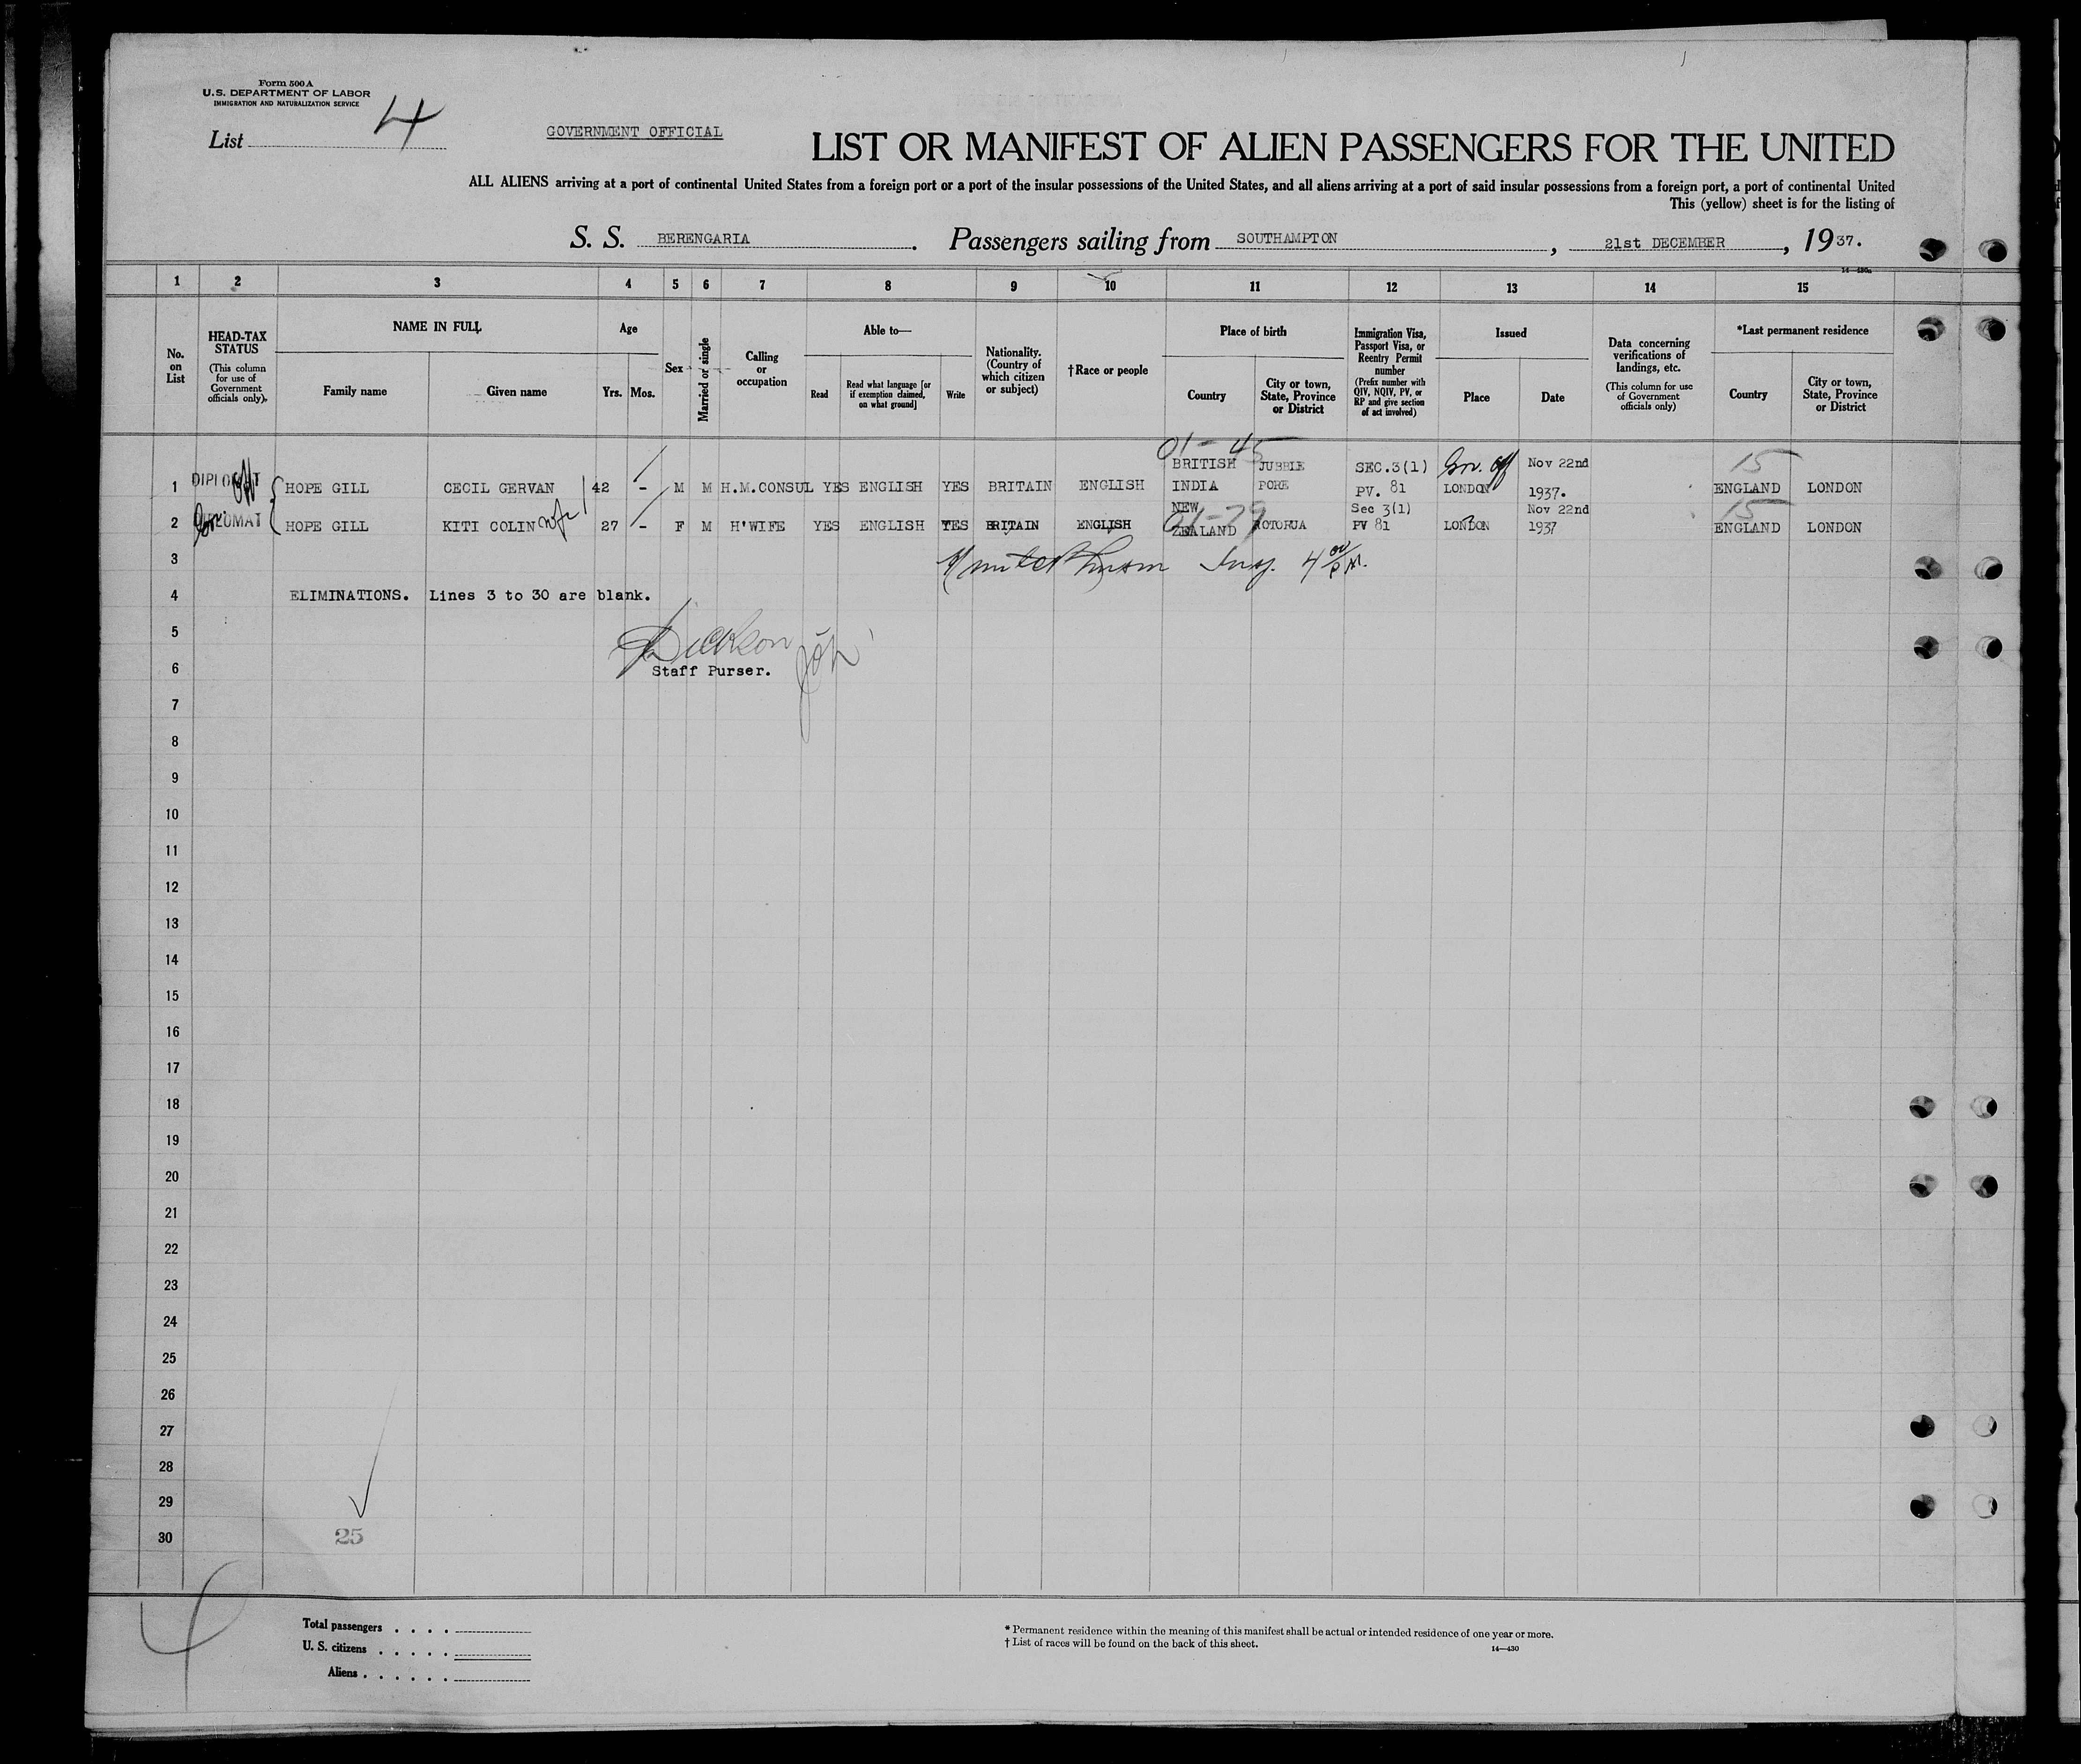 Form 500 A
U.S. DEPARTMENT OF LABOR
IMMIGRATION AND NATURALIZATION SERVICE
List 4
GOVERNMENT OFFICIAL
LIST OR MANIFEST OF ALIEN PASSENGERS FOR THE UNITED
ALL ALIENS arriving at a port of continental United States from a foreign port or a port of the insular possessions of the United States, and all aliens arriving at a port of said insular possessions from a foreign port, a port of continental United
This (yellow) sheet is for the listing of
S. S. BERENGARIA. Passengers sailing from SOUTHAMPTON, 21st DECEMBER, 1937.
14—430a
1 2 3 4 5 6 7 8 9 10 11 12 13 14 15
No. on List
HEAD-TAX STATUS
(This column for use of Government officials only).
NAME IN FULL
Family name
Given name
Age
Yrs.
Mos.
Sex
Married or single
Calling or occupation
Able to—
Read
Read what language [or if exemption claimed, on what ground]
Write
Nationality. (Country of which citizen or subject)
†Race or people
Place of birth
Country
City or town, State, Province or District
Immigration Visa, Passport Visa, or Reentry Permit number
(Prefix number with QIV, NQIV, PV, or RP and give section of act involved)
Issued
Place
Date
Data concerning verifications of landings, etc.
(This column for use of Government officials only)
*Last permanent residence
Country
City or town, State, Province or District
01-45 15
BRITISH JUBBLE SEC.3(1) Gov. off Nov 22nd
1 DIPLOMAT HOPE GILL CECIL GERVAN 42 - M M H.M.CONSUL YES ENGLISH YES BRITAIN ENGLISH INDIA PORE PV. 81 LONDON 1937. ENGLAND LONDON
NEW 01-79 Sec 3(1) Nov 22nd 15
2 DIPLOMAT HOPE GILL KITI COLIN wife 27 - F M H'WIFE YES ENGLISH YES BRITAIN ENGLISH ZEALAND ROTORUA PV 81 LONDON 1937 ENGLAND LONDON
3
4 ELIMINATIONS. Lines 3 to 30 are blank.
5 Dickson
6 Staff Purser.
7
8
9
10
11
12
13
14
15
16
17
18
19
20
21
22
23
24
25
26
27
28
29
30 25
4
Total passengers . . . .
U. S. citizens . . . . .
Aliens . . . . . .
* Permanent residence within the meaning of this manifest shall be actual or intended residence of one year or more.
† List of races will be found on the back of this sheet.
14—430